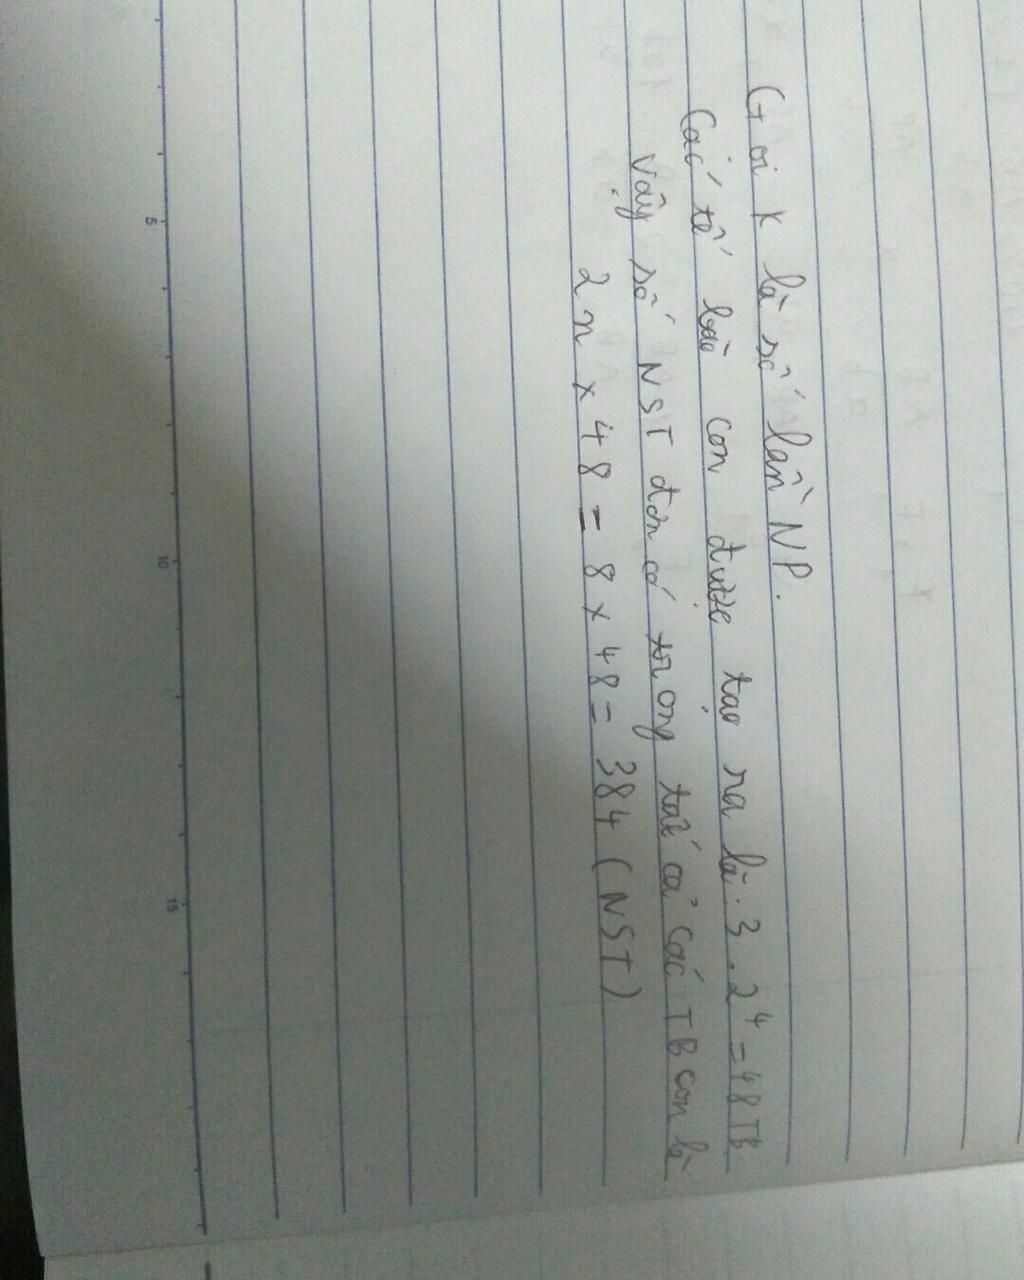 Gọi k là số lần NP.
Các tế bào con được tạo ra là: 3.2⁴ = 48 TB
Vậy số NST đơn có trong tất cả các TB con là
2n x 48 = 8 x 48 = 384 (NST)
5
10
15